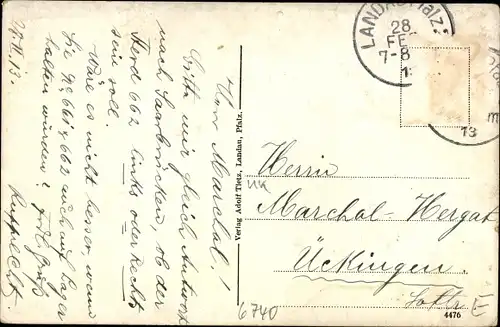 LANDAU (Pfalz)
28.
FE
7-8
13
Herrn Marchal!
Bitte mir gleich Antwort
nach Saarbrücken, ob der
Herd 662 links oder rechts
sein soll.
Wäre es nicht besser wenn
Sie No 661 & 662 auch auf Lager
halten würden? Frdl. Gruß
Rupprecht
27.II.13.
Verlag Adolf Tietz, Landau, Pfalz.
Herrn
Marchal-Hergat
Ückingen.
Lothr.
E
6740
4476